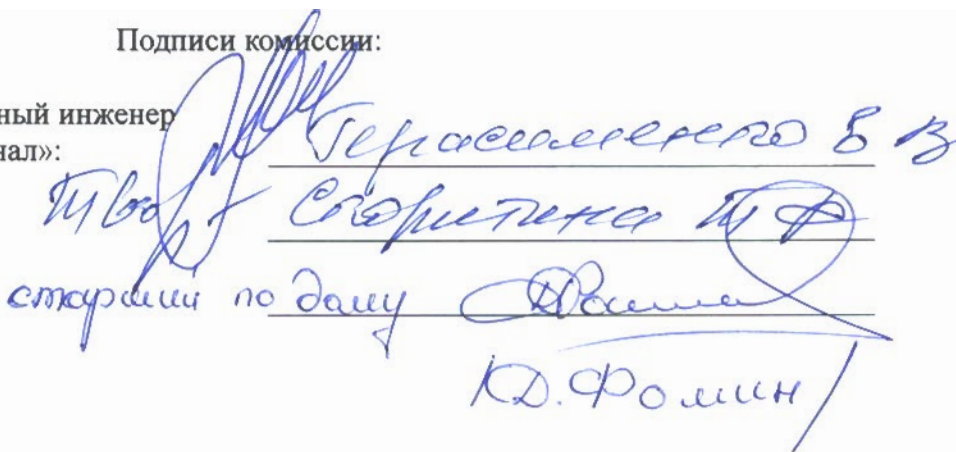 Подписи комиссии:
ный инженер
нал»:
Герасименко В В
Скоритина Т
старший по дому
К.Д. Фомин